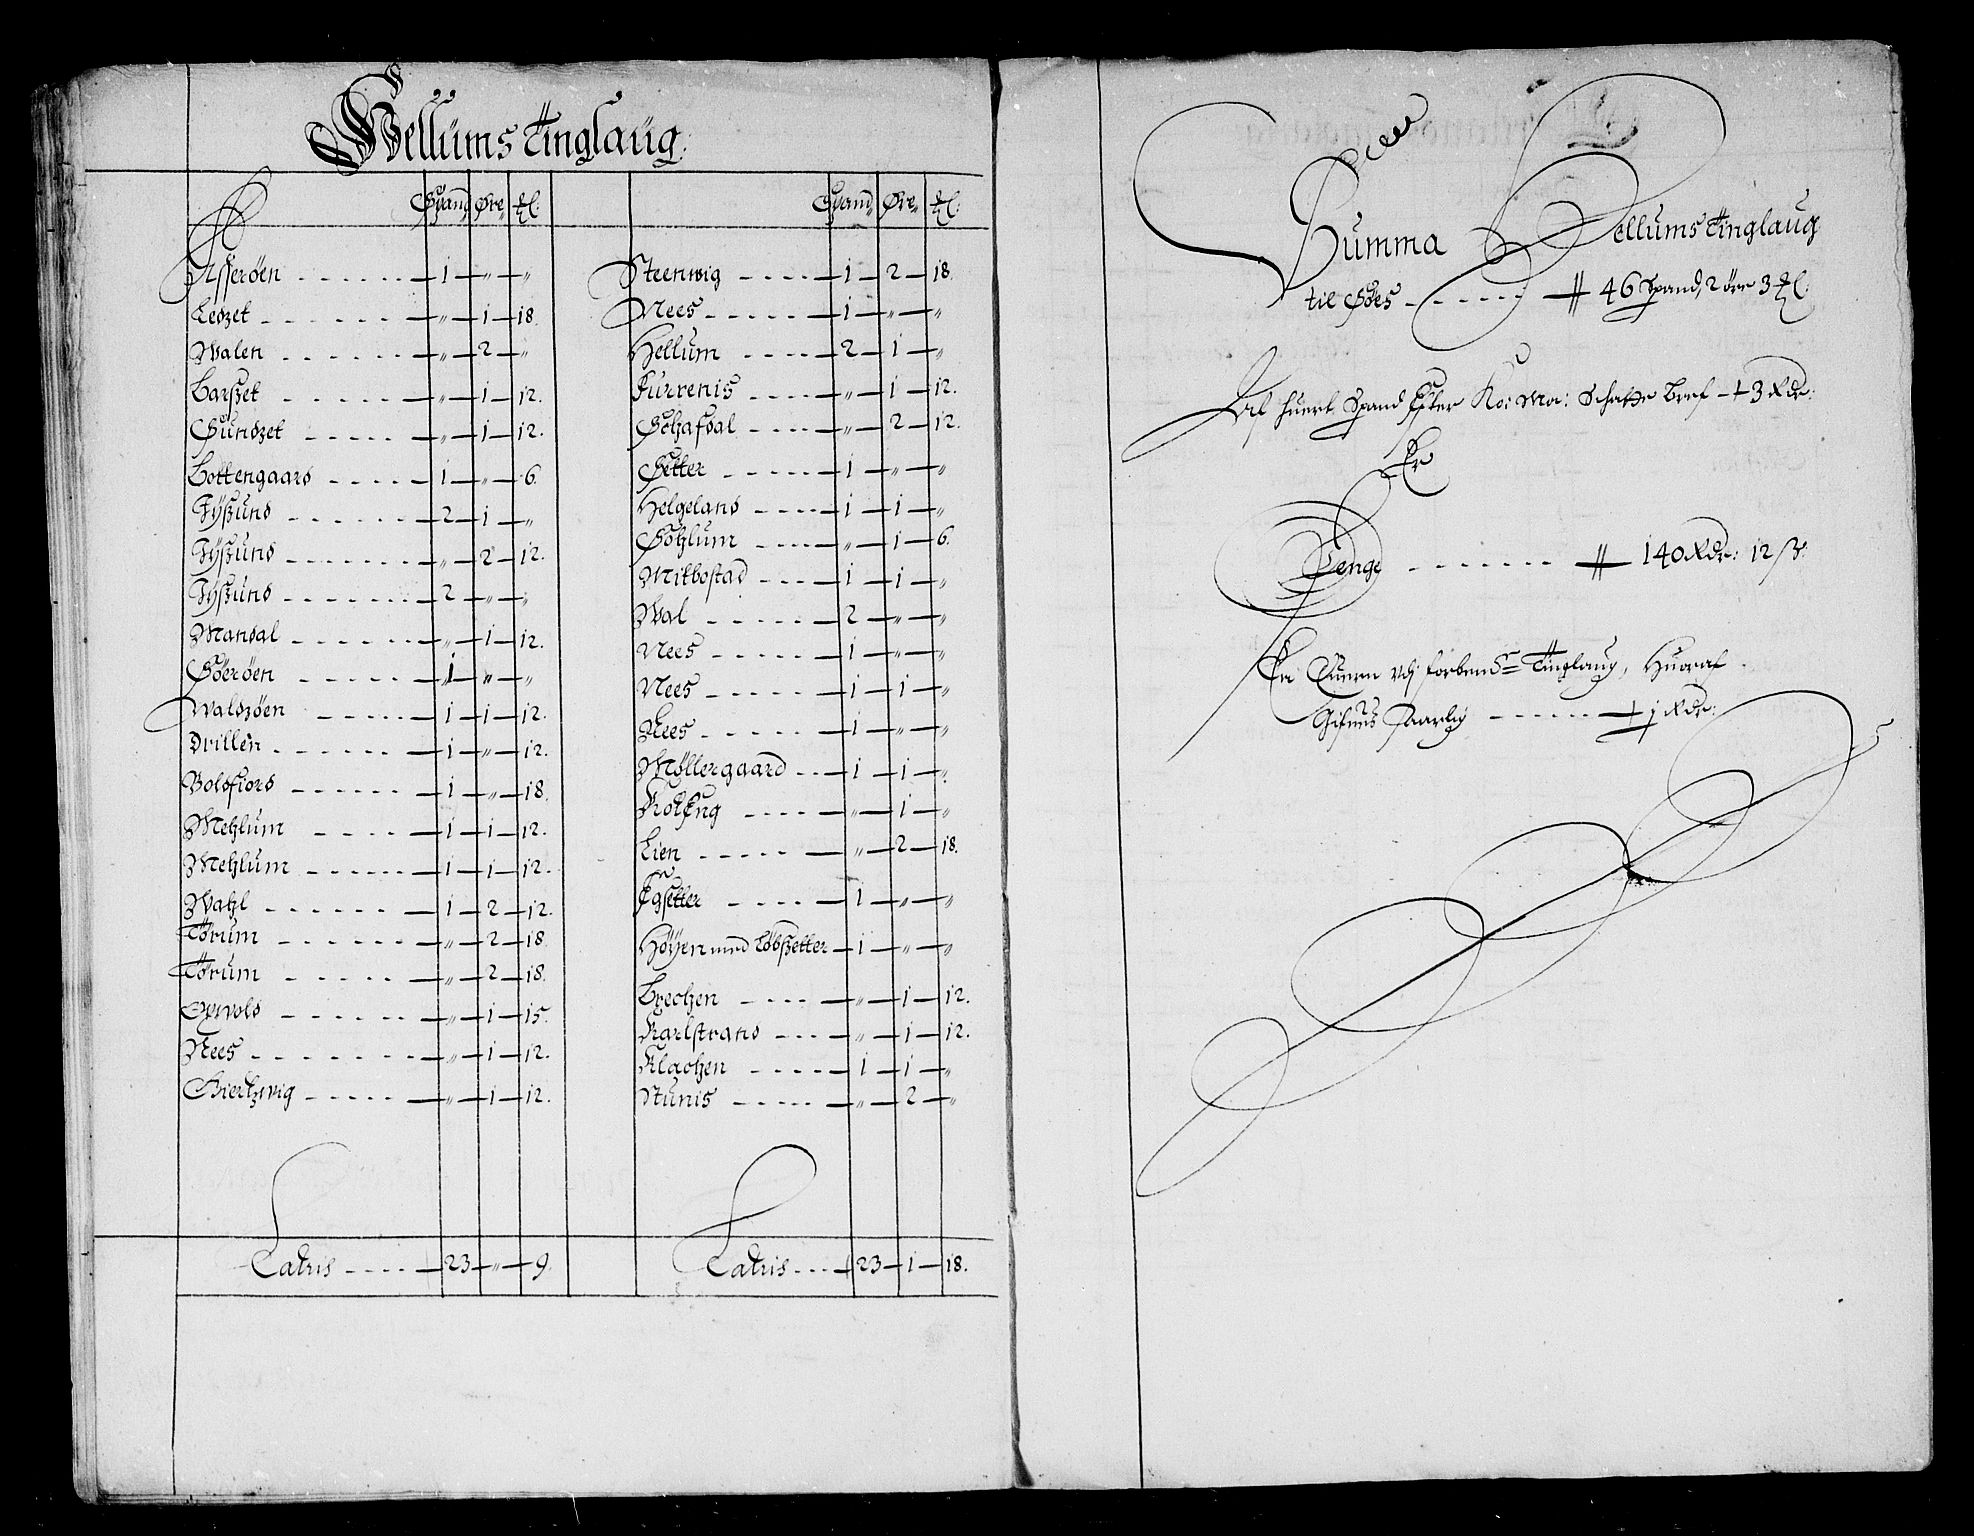 Hellums Tinglaug
Spand Øre
Asserøen 1 " "
Ledzet " 1 18
Walen " 2 "
Barßet " 1 12.
Sundzet " 1 12.
Bottengaard 1 " 6
Jÿßund 2 1 "
Jÿßund " 2 12.
Jÿßund 2 " "
Mandal " 1 12.
Søerøen 1 " "
Waldzøen 1 1 12.
Drillen 1 " 12.
Boldfiord 1 " 18.
Mehlum 1 1 12.
Mehlum 1 1 12.
Wahl 1 2 12.
Tørum " 2 18.
Tørum " 2 18.
Oxvold " 1 15.
Nees " 1 12.
" 1 12.
Latris 23 " 9.
Spand Øre
Steenwig 1 2 18.
Nees 1 " "
Hellum 2 1 "
Furrenis " 1 12.
" 2 12.
Setter 1 " "
Helgeland 1 1 "
Solzlum " 1 6.
Mitbostad 1 1 "
Wal 2 " "
Nees 1 " "
Nees 1 1 "
Nees 1 " "
Møllergaard 1 1 "
" 1 "
Lien " 2 18.
1 " "
Høÿen med Løbßetter 1 " "
Brechen " 1 12.
Karlstrand " 1 12.
Klachen 1 1 "
Nunis " 2 "
Latris 23 1 18.
Summa Hellums Tinglaug
til 46 Spand, 2 øre 3
Af huert Spand Efter Ko: Ma: Schatte Bref 3 Rdr:
Er
Penge 140 Rdr: 12 ß.
En Quern udj forben: Tinglaug, Huoraf
Gifues Jaarlig 1 Rdr: